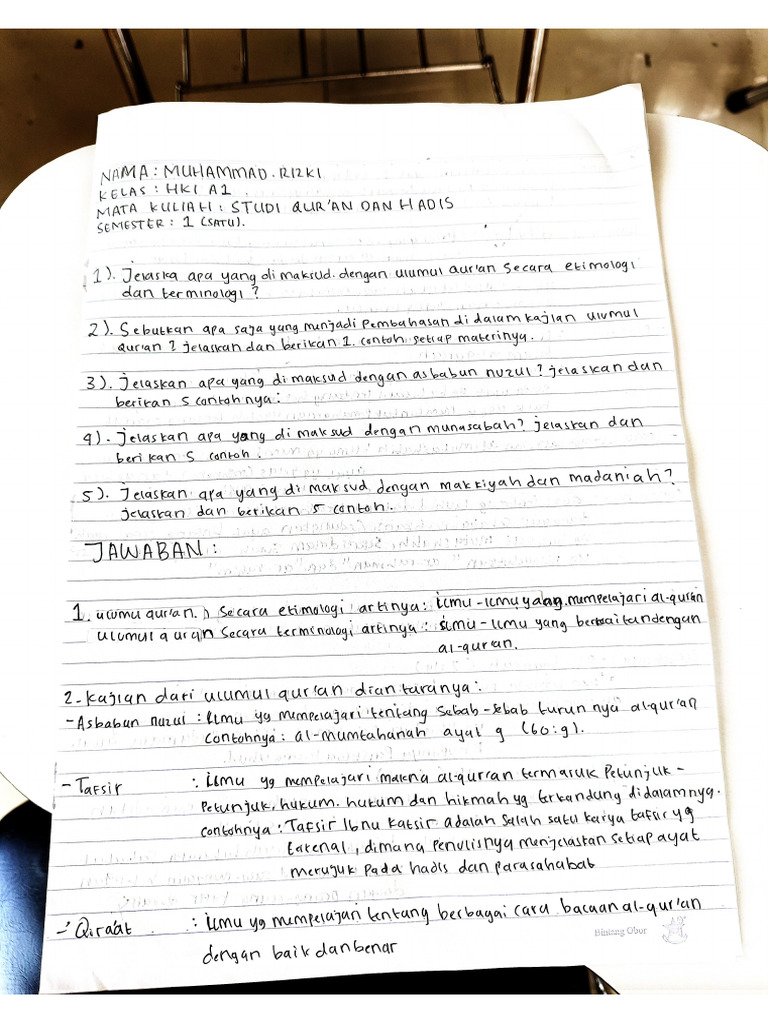 NAMA : MUHAMMAD. RIZKI
KELAS : HKI A1
MATA KULIAH : STUDI QUR'AN DAN HADIS
SEMESTER : 1 (SATU).
1). Jelaska apa yang di maksud. dengan ulumul Qur'an secara etimologi
dan terminologi ?
2). Sebutkan apa saja yang menjadi pembahasan di dalam kajian ulumul
Qur'an ? jelaskan dan berikan 1. contoh setiap materinya.
3). Jelaskan apa yang di maksud dengan asbabun nuzul ? jelaskan dan
berikan 5 contohnya :
4). Jelaskan apa yang di maksud dengan munasabah? jelaskan dan
berikan 5 contoh .
5). Jelaskan apa yang di maksud dengan makkiyah dan madaniah?
jelaskan dan berikan 5 contoh.
JAWABAN :
1. ulumul qur'an. secara etimologi artinya : ilmu-ilmu yang mempelajari al-qur'an
ulumul quran secara terminologi artinya : ilmu-ilmu yang berkaitan dengan
al-qur'an.
2. Kajian dari ulumul qur'an diantaranya :
- Asbabun nuzul : Ilmu yg mempelajari tentang sebab-sebab turun nya al-qur'an
contohnya : al-mumtahanah ayat 9 (60:9).
- Tafsir : Ilmu yg mempelajari makna al-qur'an termasuk Petunjuk-
Petunjuk, hukum. hukum dan hikmah yg terkandung didalamnya.
contohnya : Tafsir Ibnu Katsir adalah salah satu karya tafsir yg
terkenal, dimana penulisnya menjelaskan setiap ayat
merujuk pada hadis dan parasahabat
- Qira'at : Ilmu yg mempelajari tentang berbagai cara bacaan al-qur'an
dengan baik dan benar
Bintang Obor